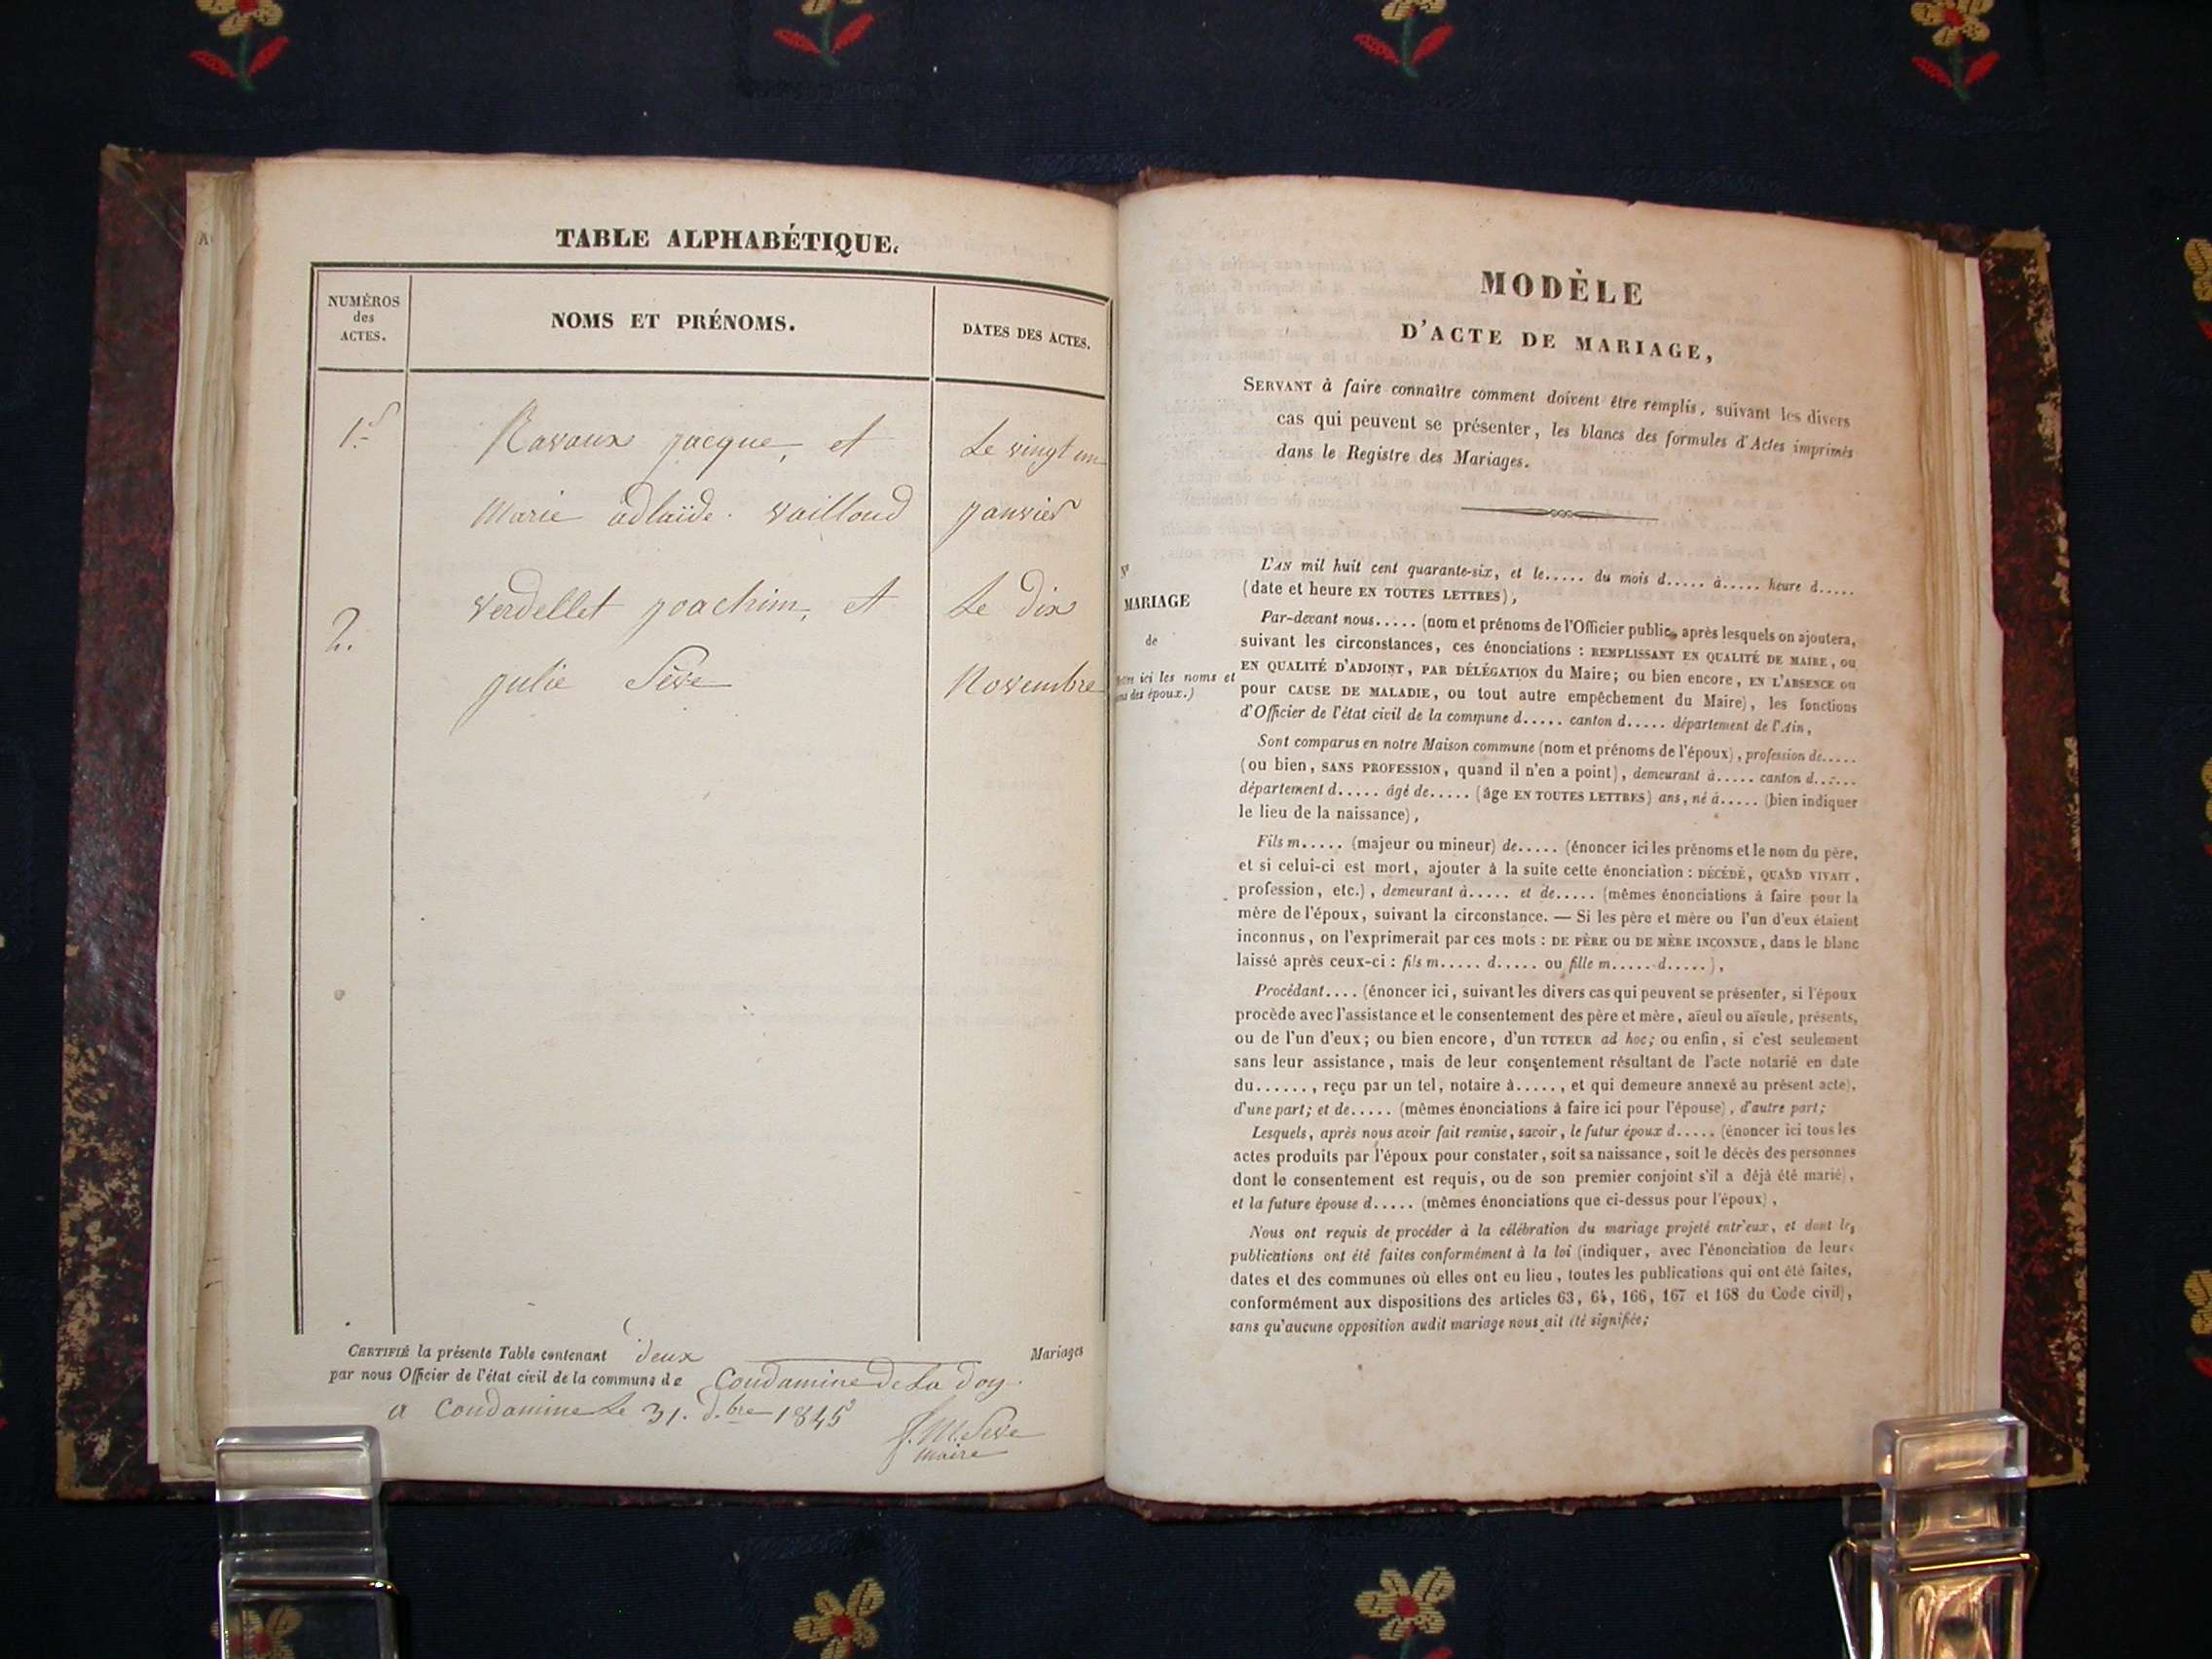 TABLE ALPHABÉTIQUE.
NUMÉROS
des
ACTES.
NOMS ET PRÉNOMS.
DATES DES ACTES.
1.
Ravaux jacque, et
Le vingt un
Marie adlaïde. Vailloud
janvier
Verdellet joachim, et
Le Dix
2.
julie Sève
Novembre
CERTIFIÉ la présente Table contenant deux Mariages
par nous Officier de l'état civil de la commune de Condamine de La Doy.
a Condamine Le 31. d.bre 1845
J. M. Seve
maire
MODÈLE
D'ACTE DE MARIAGE,
SERVANT à faire connaître comment doivent être remplis, suivant les divers
cas qui peuvent se présenter, les blancs des formules d'Actes imprimés
dans le Registre des Mariages.
N°
MARIAGE
de
ici les noms et
des époux.)
L'AN mil huit cent quarante-six, et le..... du mois d..... à..... heure d.....
(date et heure EN TOUTES LETTRES),
Par-devant nous..... (nom et prénoms de l'Officier public, après lesquels on ajoutera,
suivant les circonstances, ces énonciations : REMPLISSANT EN QUALITÉ DE MAIRE, OU
EN QUALITÉ D'ADJOINT, PAR DÉLÉGATION du Maire; ou bien encore, EN L'ABSENCE ou
pour CAUSE DE MALADIE, ou tout autre empêchement du Maire), les fonctions
d'Officier de l'état civil de la commune d..... canton d..... département de l'Ain,
Sont comparus en notre Maison commune (nom et prénoms de l'époux), profession de.....
(ou bien, SANS PROFESSION, quand il n'en a point), demeurant à..... canton d.....
département d..... âgé de..... (âge EN TOUTES LETTRES) ans, né à..... (bien indiquer
le lieu de la naissance),
Fils m..... (majeur ou mineur) de..... (énoncer ici les prénoms et le nom du père,
et si celui-ci est mort, ajouter à la suite cette énonciation : DÉCÉDÉ, QUAND VIVAIT,
profession, etc.), demeurant à..... et de..... (mêmes énonciations à faire pour la
mère de l'époux, suivant la circonstance. — Si les père et mère ou l'un d'eux étaient
inconnus, on l'exprimerait par ces mots : DE PÈRE OU DE MÈRE INCONNUE, dans le blanc
laissé après ceux-ci : fils m..... d..... ou fille m..... d.....),
Procédant.... (énoncer ici, suivant les divers cas qui peuvent se présenter, si l'époux
procède avec l'assistance et le consentement des père et mère, aïeul ou aïeule, présents,
ou de l'un d'eux; ou bien encore, d'un TUTEUR ad hoc; ou enfin, si c'est seulement
sans leur assistance, mais de leur consentement résultant de l'acte notarié en date
du......, reçu par un tel, notaire à....., et qui demeure annexé au présent acte),
d'une part; et de..... (mêmes énonciations à faire ici pour l'épouse), d'autre part;
Lesquels, après nous avoir fait remise, savoir, le futur époux d..... (énoncer ici tous les
actes produits par l'époux pour constater, soit sa naissance, soit le décès des personnes
dont le consentement est requis, ou de son premier conjoint s'il a déjà été marié),
et la future épouse d..... (mêmes énonciations que ci-dessus pour l'époux),
Nous ont requis de procéder à la célébration du mariage projeté entr'eux, et dont les
publications ont été faites conformément à la loi (indiquer, avec l'énonciation de leurs
dates et des communes où elles ont eu lieu, toutes les publications qui ont été faites,
conformément aux dispositions des articles 63, 64, 166, 167 et 168 du Code civil),
sans qu'aucune opposition audit mariage nous ait été signifiée;